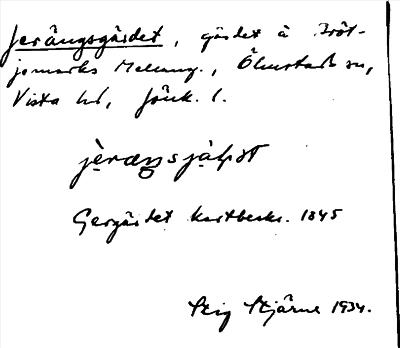 Jerängsgärdet, gärdet å Bröt-
jemarks Mellang., Ölmstads sn,
Vista hd, Jönk. l.
jèrængsjàḷṣət
Gergärdet Kartbeskr. 1845
Stig Stjärne 1934.